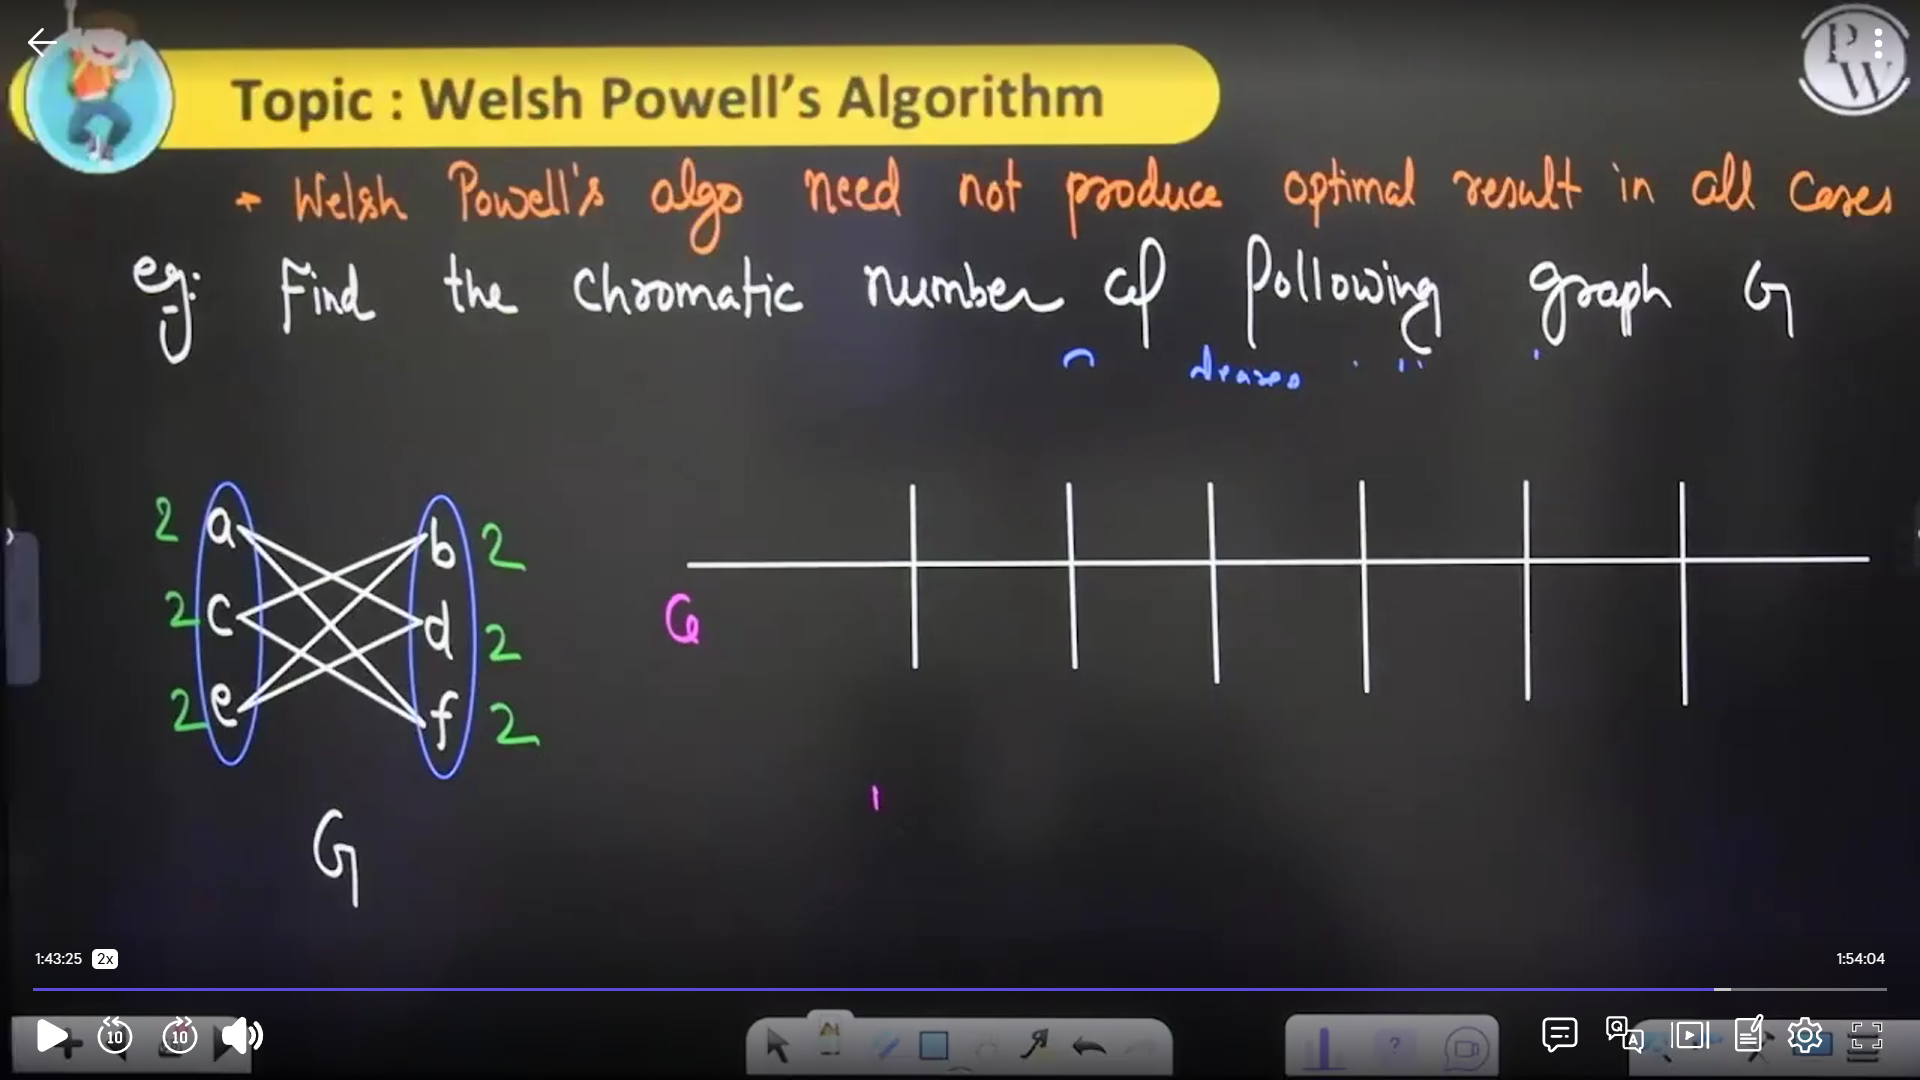 Topic : Welsh Powell's Algorithm
P
W
Welsh Powell's algo need not produce optimal result in all cases
eg: Find the chromatic number of following graph G
2 a b 2
2 c d 2
2 e f 2
G
1:43:25 2x 1:54:04
10 10